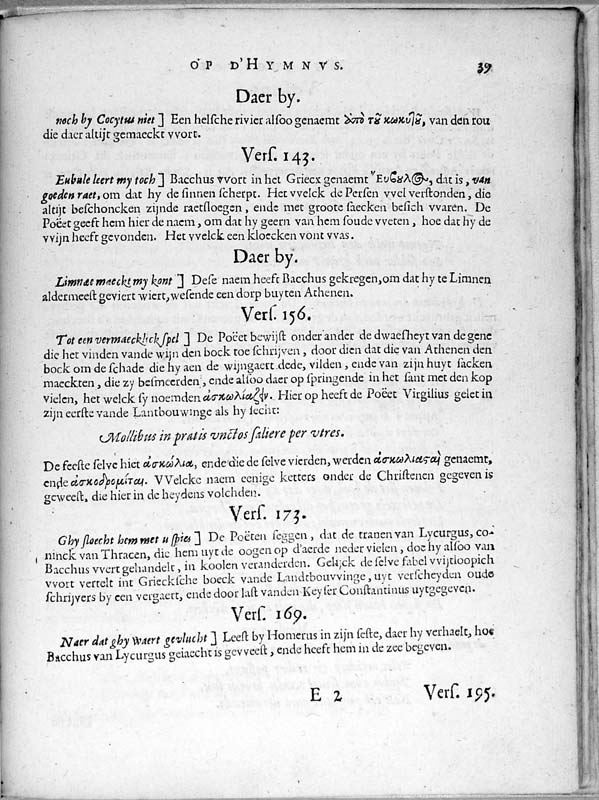 OP D'HYMNVS. 39
Daer by.
noch by Cocytus niet ] Een helſche rivier alſoo genaemt ἀπὸ τοῦ κωκυτοῦ, van den rou
die daer altijt gemaeckt vvort.
Verſ. 143.
Eubule leert my toch ] Bacchus vvort in het Griecx genaemt Ἔυβουλος, dat is, van
goeden raet, om dat hy de ſinnen ſcherpt. Het vvelck de Perſen vvel verſtonden, die
altijt beſchoncken zijnde raetſloegen, ende met groote ſaecken beſich vvaren. De
Poëet geeft hem hier de naem, om dat hy geern van hem ſoude vveten, hoe dat hy de
vvijn heeft gevonden. Het vvelck een kloecken vont vvas.
Daer by.
Limnae maeckt my kont ] Deſe naem heeft Bacchus gekregen, om dat hy te Limnen
aldermeeſt geviert wiert, weſende een dorp buyten Athenen.
Verſ. 156.
Tot een vermaecklick ſpel ] De Poëet bewijſt onder ander de dwaeſheyt van de gene
die het vinden vande wijn den bock toe ſchrijven, door dien dat die van Athenen den
bock om de ſchade die hy aen de wijngaert dede, vilden, ende van zijn huyt ſacken
maeckten, die zy beſmeerden, ende alſoo daer op ſpringende in het ſant met den kop
vielen, het welck ſy noemden ἀσκωλιάζειν. Hier op heeft de Poëet Virgilius geſet in
zijn eerſte vande Lantbouwinge als hy ſecht:
Mollibus in pratis unctos ſaliere per utres.
De feeſte ſelve hiet ἀσκώλια, ende die de ſelve vierden, werden ἀσκωλιασταὶ genaemt,
ende ἀσκοδρομίται. VVelcke naem eenige ketters onder de Chriſtenen gegeven is
geweeſt, die hier in de heydens volchden.
Verſ. 173.
Ghy ſloecht hem met u ſpies ] De Poëten ſeggen, dat de tranen van Lycurgus, co-
ninck van Thracen, die hem uyt de oogen op d'aerde neder vielen, doe hy alſoo van
Bacchus vvert gehandelt, in koolen veranderden. Gelijck de ſelve fabel vvijtloopich
vvort vertelt int Grieckſche boeck vande Landtbouvvinge, uyt verſcheyden oude
ſchrijvers by een vergaert, ende door laſt vanden Keyſer Conſtantinus uytgegeven.
Verſ. 169.
Naer dat ghy waert gevlucht ] Leeſt by Homerus in zijn ſeſte, daer hy verhaelt, hoe
Bacchus van Lycurgus geiaecht is gevveeſt, ende heeft hem in de zee begeven.
E 2 Verſ. 195.